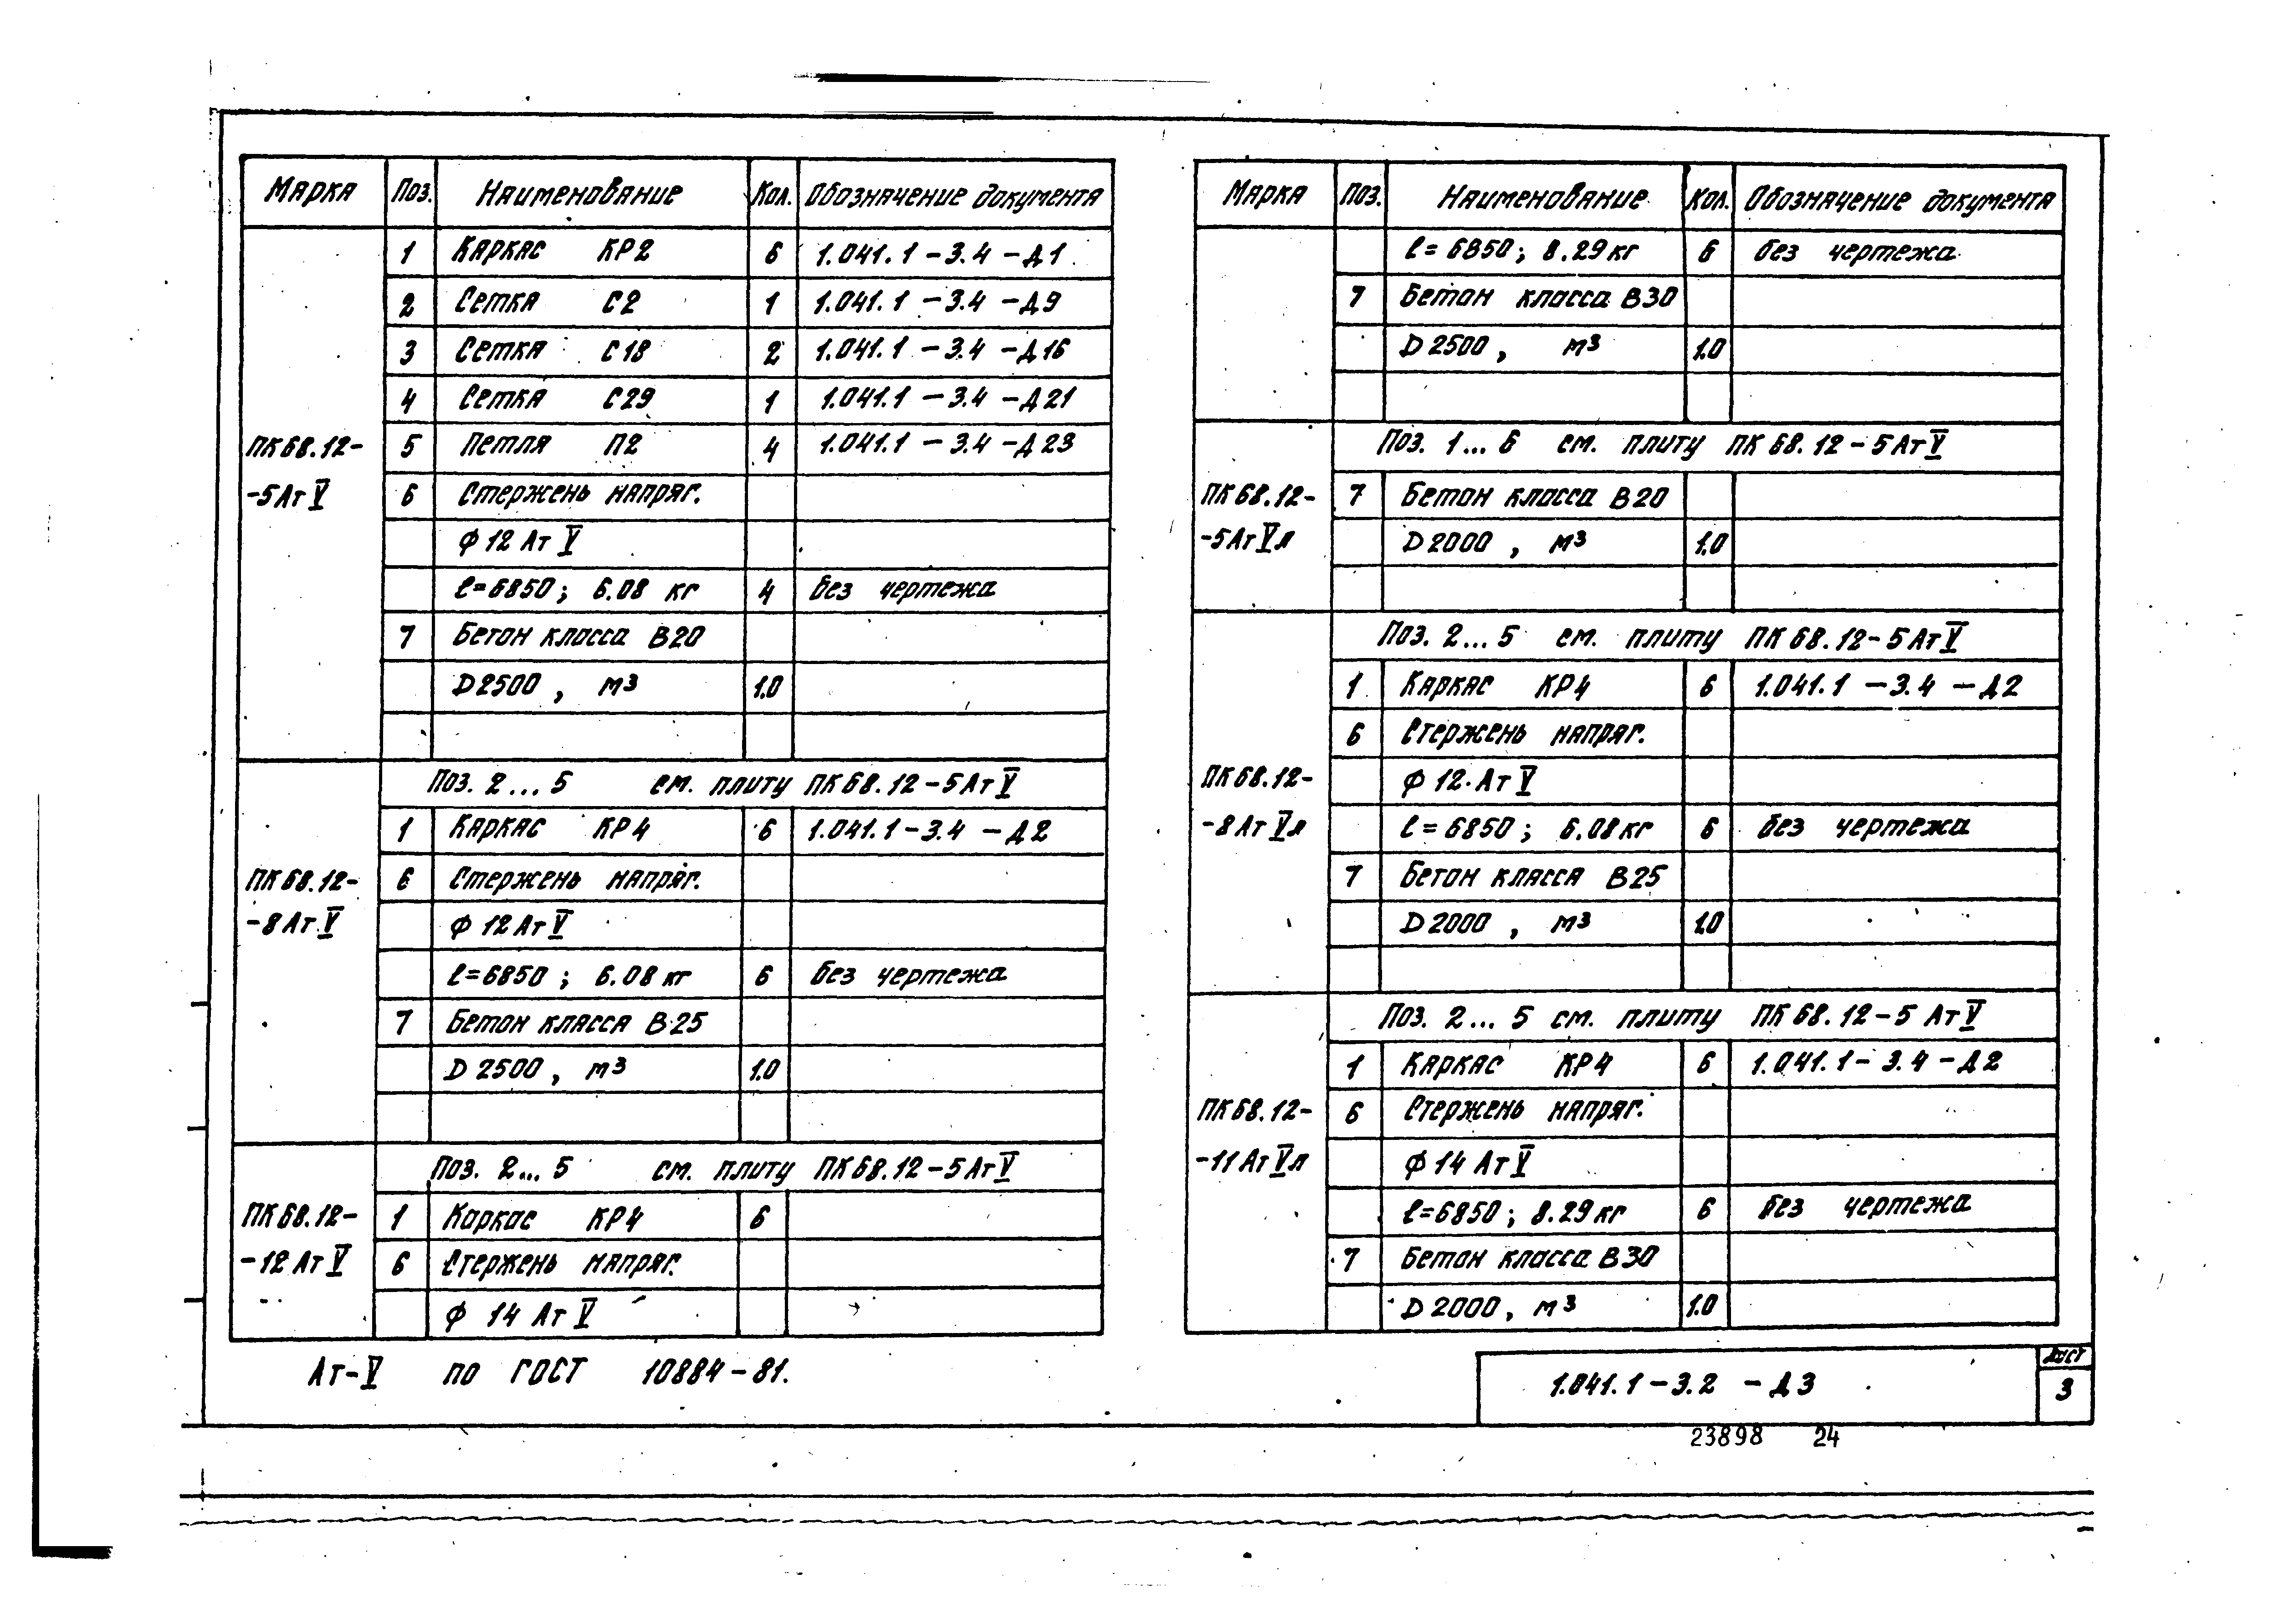 Марка Поз. Наименование Кол. Обозначение документа
1 Каркас КР2 6 1.041.1-3.4-Д1
2 Сетка С2 1 1.041.1-3.4-Д9
3 Сетка С18 2 1.041.1-3.4-Д16
4 Сетка С29 1 1.041.1-3.4-Д21
ПК68.12- 5 Петля П2 4 1.041.1-3.4-Д23
-5АтV 6 Стержень напряг.
Ф12 АтV
ℓ=6850; 6.08 кг 4 без чертежа
7 Бетон класса В20
D2500, м3 1.0
Поз. 2...5 см. плиту ПК68.12-5АтV
1 Каркас КР4 6 1.041.1-3.4-Д2
ПК68.12- 6 Стержень напряг.
-8АтV Ф12АтV
ℓ=6850; 6.08кг 6 без чертежа
7 Бетон класса В25
D2500, м3 1.0
Поз. 2...5 см. плиту ПК68.12-5АтV
ПК68.12- 1 Каркас КР4 6
-12АтV 6 Стержень напряг.
Ф 14 АтV
Ат-V по ГОСТ 10884-81.
Марка Поз. Наименование Кол. Обозначение документа
ℓ=6850; 8.29кг 6 без чертежа
7 Бетон класса В30
D2500, м3 1.0
Поз. 1...6 см. плиту ПК68.12-5АтV
ПК68.12- 7 Бетон класса В20
-5АтVл D2000, м3 1.0
Поз. 2...5 см. плиту ПК68.12-5АтV
1 Каркас КР4 6 1.041.1-3.4-Д2
6 Стержень напряг.
ПК68.12- Ф12 АтV
-8АтVл ℓ=6850; 6.08кг 6 без чертежа
7 Бетон класса В25
D2000, м3 1.0
Поз. 2...5 см. плиту ПК68.12-5АтV
1 Каркас КР4 6 1.041.1-3.4-Д2
ПК68.12- 6 Стержень напряг.
-11АтVл Ф14 АтV
ℓ=6850; 8.29кг 6 без чертежа
7 Бетон класса В30
D2000, м3 1.0
1.041.1-3.2-Д3
Лист
3
23898 24